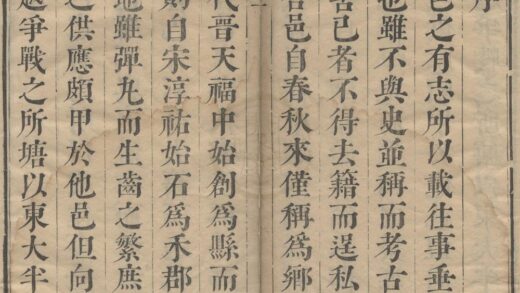 序
邑之有志所以載往事垂
也雖不與史並稱而考古
害己者不得去籍而逞私
邑自春秋來僅稱爲鄉
代晉天福中始創爲縣而
則自宋淳祐始石爲禾郡
地雖彈丸而生齒之繁庶
之供應頗甲於他邑但向
爭戰之所塘以東大半